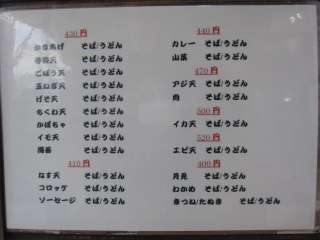 430円
かきあげ そば/うどん
春菊天 そば/うどん
ごぼう天 そば/うどん
玉ねぎ天 そば/うどん
げそ天 そば/うどん
ちくわ天 そば/うどん
かぼちゃ そば/うどん
イモ天 そば/うどん
そば/うどん
410円
なす天 そば/うどん
コロッケ そば/うどん
ソーセージ そば/うどん
440円
カレー そば/うどん
山菜 そば/うどん
470円
アジ天 そば/うどん
肉 そば/うどん
500円
イカ天 そば/うどん
520円
エビ天 そば/うどん
400円
月見 そば/うどん
わかめ そば/うどん
きつね/たぬき そば/うどん